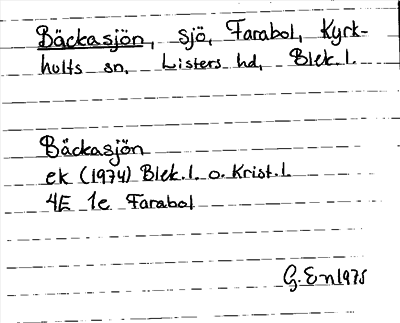 Bäckasjön, sjö, Farabol, Kyrk-
hults sn, Listers hd, Blek.l.
Bäckasjön
ek (1974) Blek.l. o. Krist.l.
4E 1e Farabol
G. En 1975